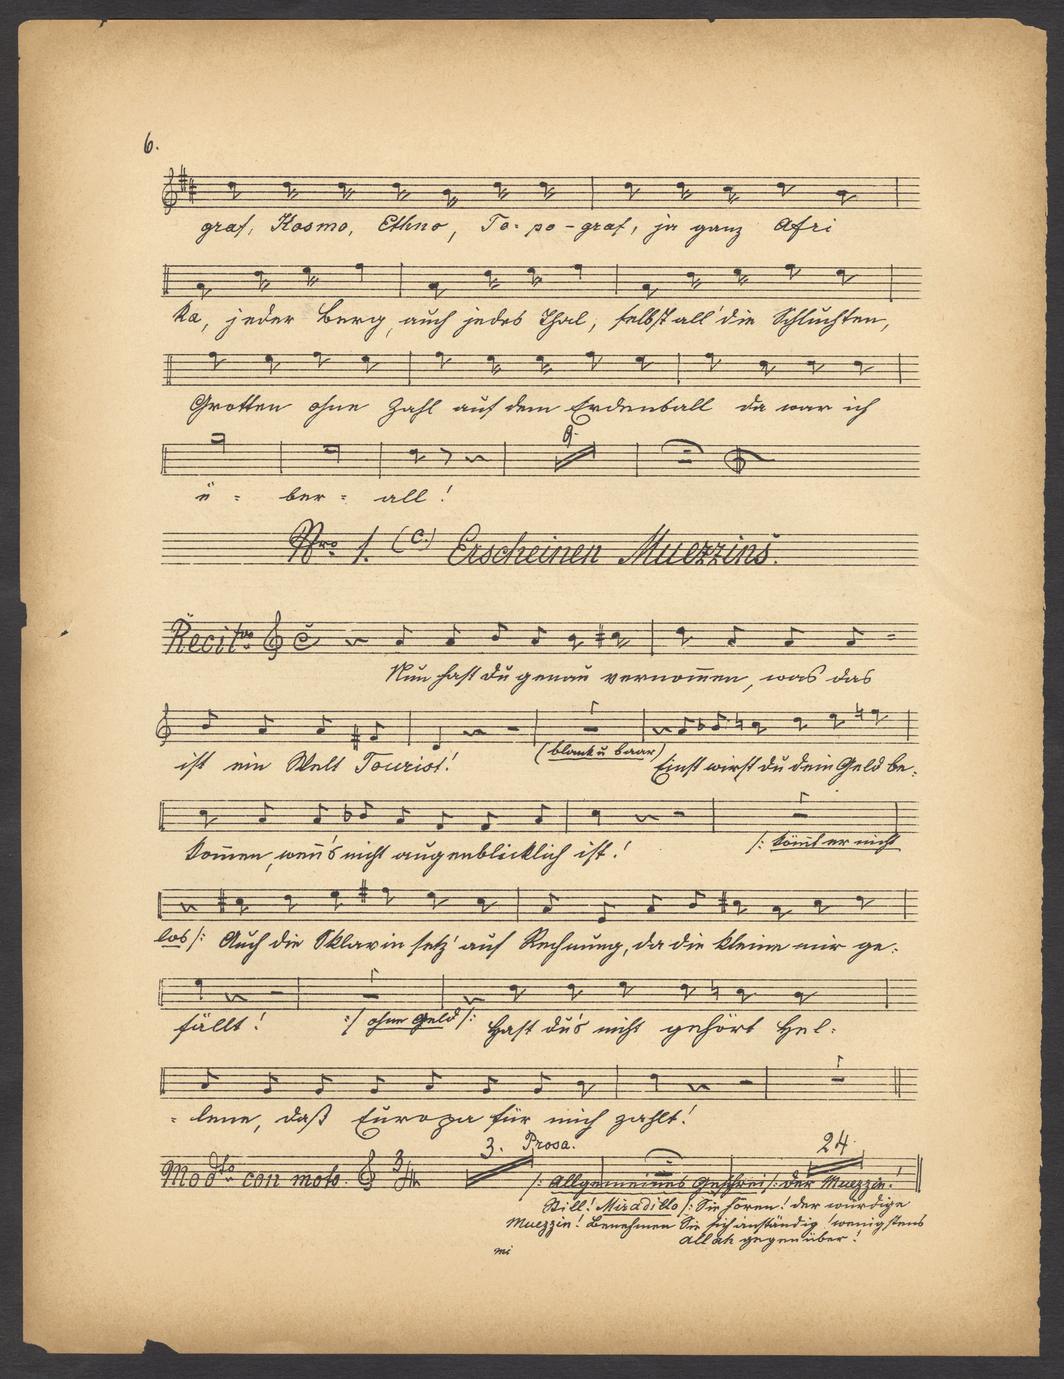 6.
graf, Kosmo, Ethno, To- po-graf, ja ganz Afri
ka, jeder Berg, auch jedes Thal, selbst all' die Schluchten,
Grotten ohne Zahl auf dem Erdenball da war ich
9.
ü - ber - all!
Nro 1. (C.) Erscheinen Muezzins.
Recit:tvo
Nun hast du genau vernom̄en, was das
ist ein Welt Tourist! (blank u baar) Einst wirst du dein Geld be-
kom̄en, wen̄'s nicht augenblicklich ist! /: kom̄t er nicht
los :/ Auch die Sklavin setz' auf Rechnung, da die kleine mir ge-
fällt! :/ ohne Geld /: Hast du's nicht gehört Hel-
- lene, daß Europa für mich zahlt!
3. Prosa. 24.
Modto con moto. 3/4 /: Allgemeines Geschrei :/ der Muezzin!
Still! Miradillo /: Sie hören! der würdige
Muezzin! Benehmen Sie sich anständig! wenigstens
mi Allah gegenüber!